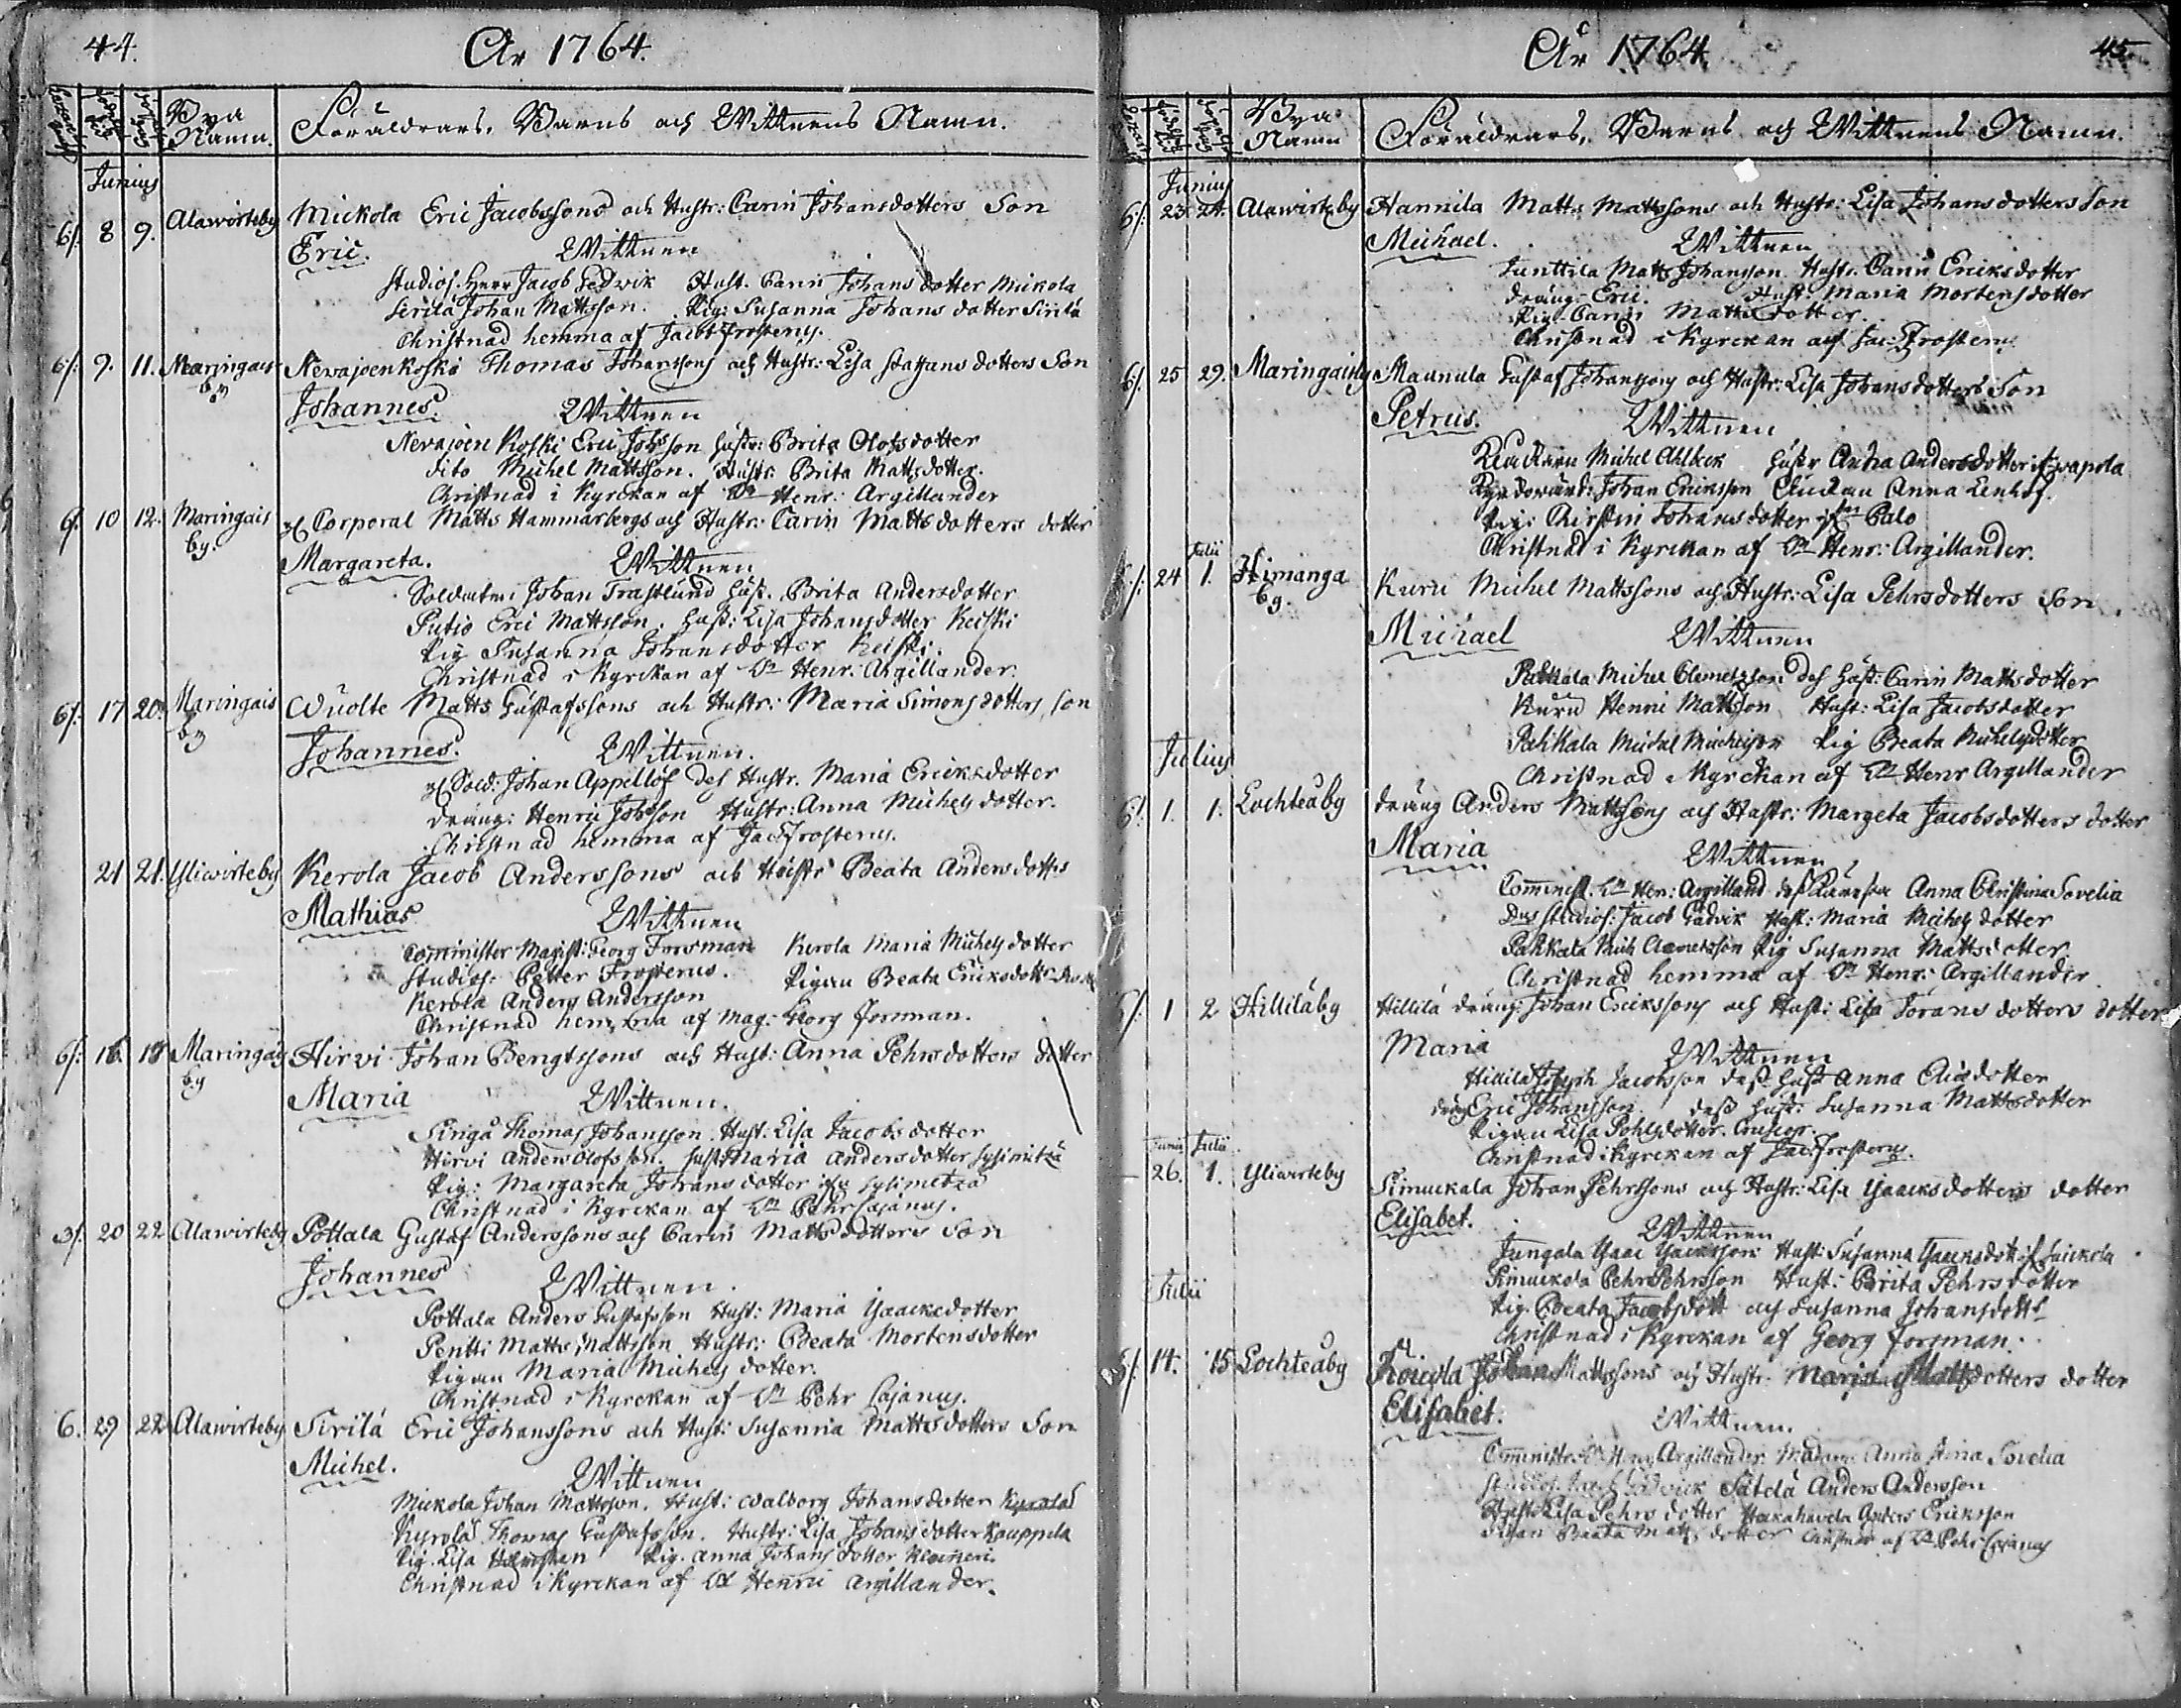 44.
År 1764.
Bya Namn.
Föräldrars, Barns och Wittnens Namn.
Junius
6/: 8 9. Alawirteby Mickola Eric Jacobssons och Hustr: Carin Johansdotters Son
Eric. Wittnen
Studios. Herr Jacob Gedwik Hust. Carin Johans dotter Mickola
Sirilä Johan Mattsson. Pig: Susanna Johans dotter Sirilä
Christnad hemma af Jacob Frosterus.
6/: 9. 11. Maringais by Nevajoenkoski Thomas Johanssons och Hustr: Lisa Staffans dotters Son
Johannes. Wittnen
Nevajoen Koski Eric Johsson hustr: Brita Olofsdotter
dito Michel Mattsson. Hustr: Brita Mattsdotter.
Christnad i Kyrckan af Dn Henr: Argillander
6/: 10 12. Maringais by. Corporal Matts Hammarbergs och Hustr: Carin Mattsdotters dotter
Margareta. Wittnen
Soldaten Johan Trastlund hust. Brita Andersdotter
Putio Eric Mattsson. hust: Lisa Johansdotter Keiski
Pig Susanna Johansdotter Keiski.
Christnad i Kyrckan af Dn Henr: Argillander.
6/: 17 20. Maringais by Wuolte Matts Gustafssons och Hustr: Maria Simonsdotters son
Johannes. Wittnen.
Sold: Johan Appellöf des Hustr. Maria Ericksdotter
dräng: Henric Johsson Hustr: Anna Michelsdotter.
Christnad hemma af Jac: Frosterus.
21 21. Yliwirteby Kerola Jacob Anderssons och Hustr Beata Anders dotters
Mathias Wittnen
Comminister Magist: Georg Forsman Kerola Maria Michels dotter
Studios: Petter Frosterus. Pigan Beata Ericksdotter
Kerola Anders Andersson
Christnad hemma af Mag: Georg Forsman.
6/: 16. 18 Maringais by Hirvi Johan Bengtssons och Hust: Anna Pehrsdotters dotter
Maria Wittnen.
Singå Thomas Johansson. Hust: Lisa Jacobsdotter
Hirvi Anders Olofsson. hust: Maria Andersdotter Sysimetsä
Pig: Margareta Johansdotter ifr Sysimetsä
Christnad i Kyrckan af Dn Pehr Cajanus.
3/: 20 22 Alawirteby Pottala Gustaf Anderssons och Carin Matts dotters Son
Johannes Wittnen.
Pottala Anders Gustafsson Hust: Maria Ysaacksdotter
Pentti Matts Mattsson Hustr: Beata Mortensdotter
Pigan Maria Michels dotter.
Christnad i Kyrckan af Dn Pehr Cajanus.
6. 29 22 Alawirteby Sirilä Eric Johanssons och Hust: Susanna Mattsdotters Son
Michel. Wittnen
Mickola Johan Mattsson. Hust: Walborg Johansdotter
Kyrolä Thomas Gustafsson. Hustr: Lisa Johansdotter Kauppila
Pig. Lisa Pig. Anna Johansdotter
Christnad i Kyrckan af Dn Henric Argillander.
År 1764
45.
Bya Namn
Föräldrars, Barns och Wittnens Namn.
Junius
6/: 23 24. Alawirteby Hannila Matts Mattssons och Hustr: Lisa Johansdotters Son
Michael. Wittnen
Junttila Matts Johansson Hustr. Carin Ericksdotter
dräng Eric. Hust: Maria Mortensdotter
Pig Carin Mattsdotter.
Christnad i Kyrckan af Jac: Frosterus
6/: 25 29. Maringaisby Maunula Gustaf Johanssons och Hustr: Lisa Johansdotters Son
Petrus. Wittnen
Michel Ahlbeck hustr Anna Andersdotter
Johan Ericksson Anna Lenhof.
Pig: Christin Johansdotter ifrn Palo
Christnad i Kyrckan af Dn Henr: Argillander.
Julii
6/: 24 1. Himanga by. Kuru Michel Mattssons och Hustr: Lisa Pehrsdotters Son
Michael Wittnen
Pahkala Michel Clemetsson des hust: Carin Mattsdotter
Kuru Henric Mattsson Hust: Lisa Jacobsdotter
Pahkala Michel Michelsson Pig Beata Michelsdotter
Christnad i Kyrckan af Dn Henr Argillander
Julius
6/: 1. 1. Lochteåby dräng Anders Mattssons och Hustr: Margeta Jacobsdotters dotter
Maria Wittnen
Comminist. Dn Hen: Argilland dess Anna Christina Sovelia
Studios: Jacob Gedwik Hust: Maria Michelsdotter
Pahkala Mich Clemetsson Pig Susanna Mattsdotter
Christnad hemma af Dn Henr: Argillander.
6/: 1 2 Hilliläby Hillilä dräng: Johan Ericksssons och Hust: Lisa Jörans dotters dotter
Maria Wittnen
Hillilä Joseph Jacobsson dess hust Anna dotter
dräng Eric Johansson. dess hust: Susanna Mattsdotter
Pigan Lisa Pohlsdotter.
Christnad i Kyrckan af Jac: Frosterus.
Junii Julii
26. 1. Yliwirteby Simuckala Johan Pehrssons och Hustr: Lisa Ysaacksdotters dotter
Elisabet. Wittnen
Jungala Ysaac Ysacksson Hust: Susanna Ysaacksdott
Simuckala Pehr Pehrsson Hust: Brita Pehrsdotter
Pig. Beata Jacobsdott och Susanna Johansdotte
Christnad i Kyrckan af Georg Forsman.
Julii
6/: 14. 15 Lochteåby Johan Mattssons och Hustr: Maria Mattsdotters dotter
Elisabet. Wittnen.
Cominister Dn Henr Argillander. Madame Anna Stina Sovelia
Studios. Jacob Gedwick Sätelä Anders Andersson
Hustr Lisa Pehrsdotter Anders Ericksson
Pigan Beata Matts dotter Christnad af Dn Pehr Cajanus